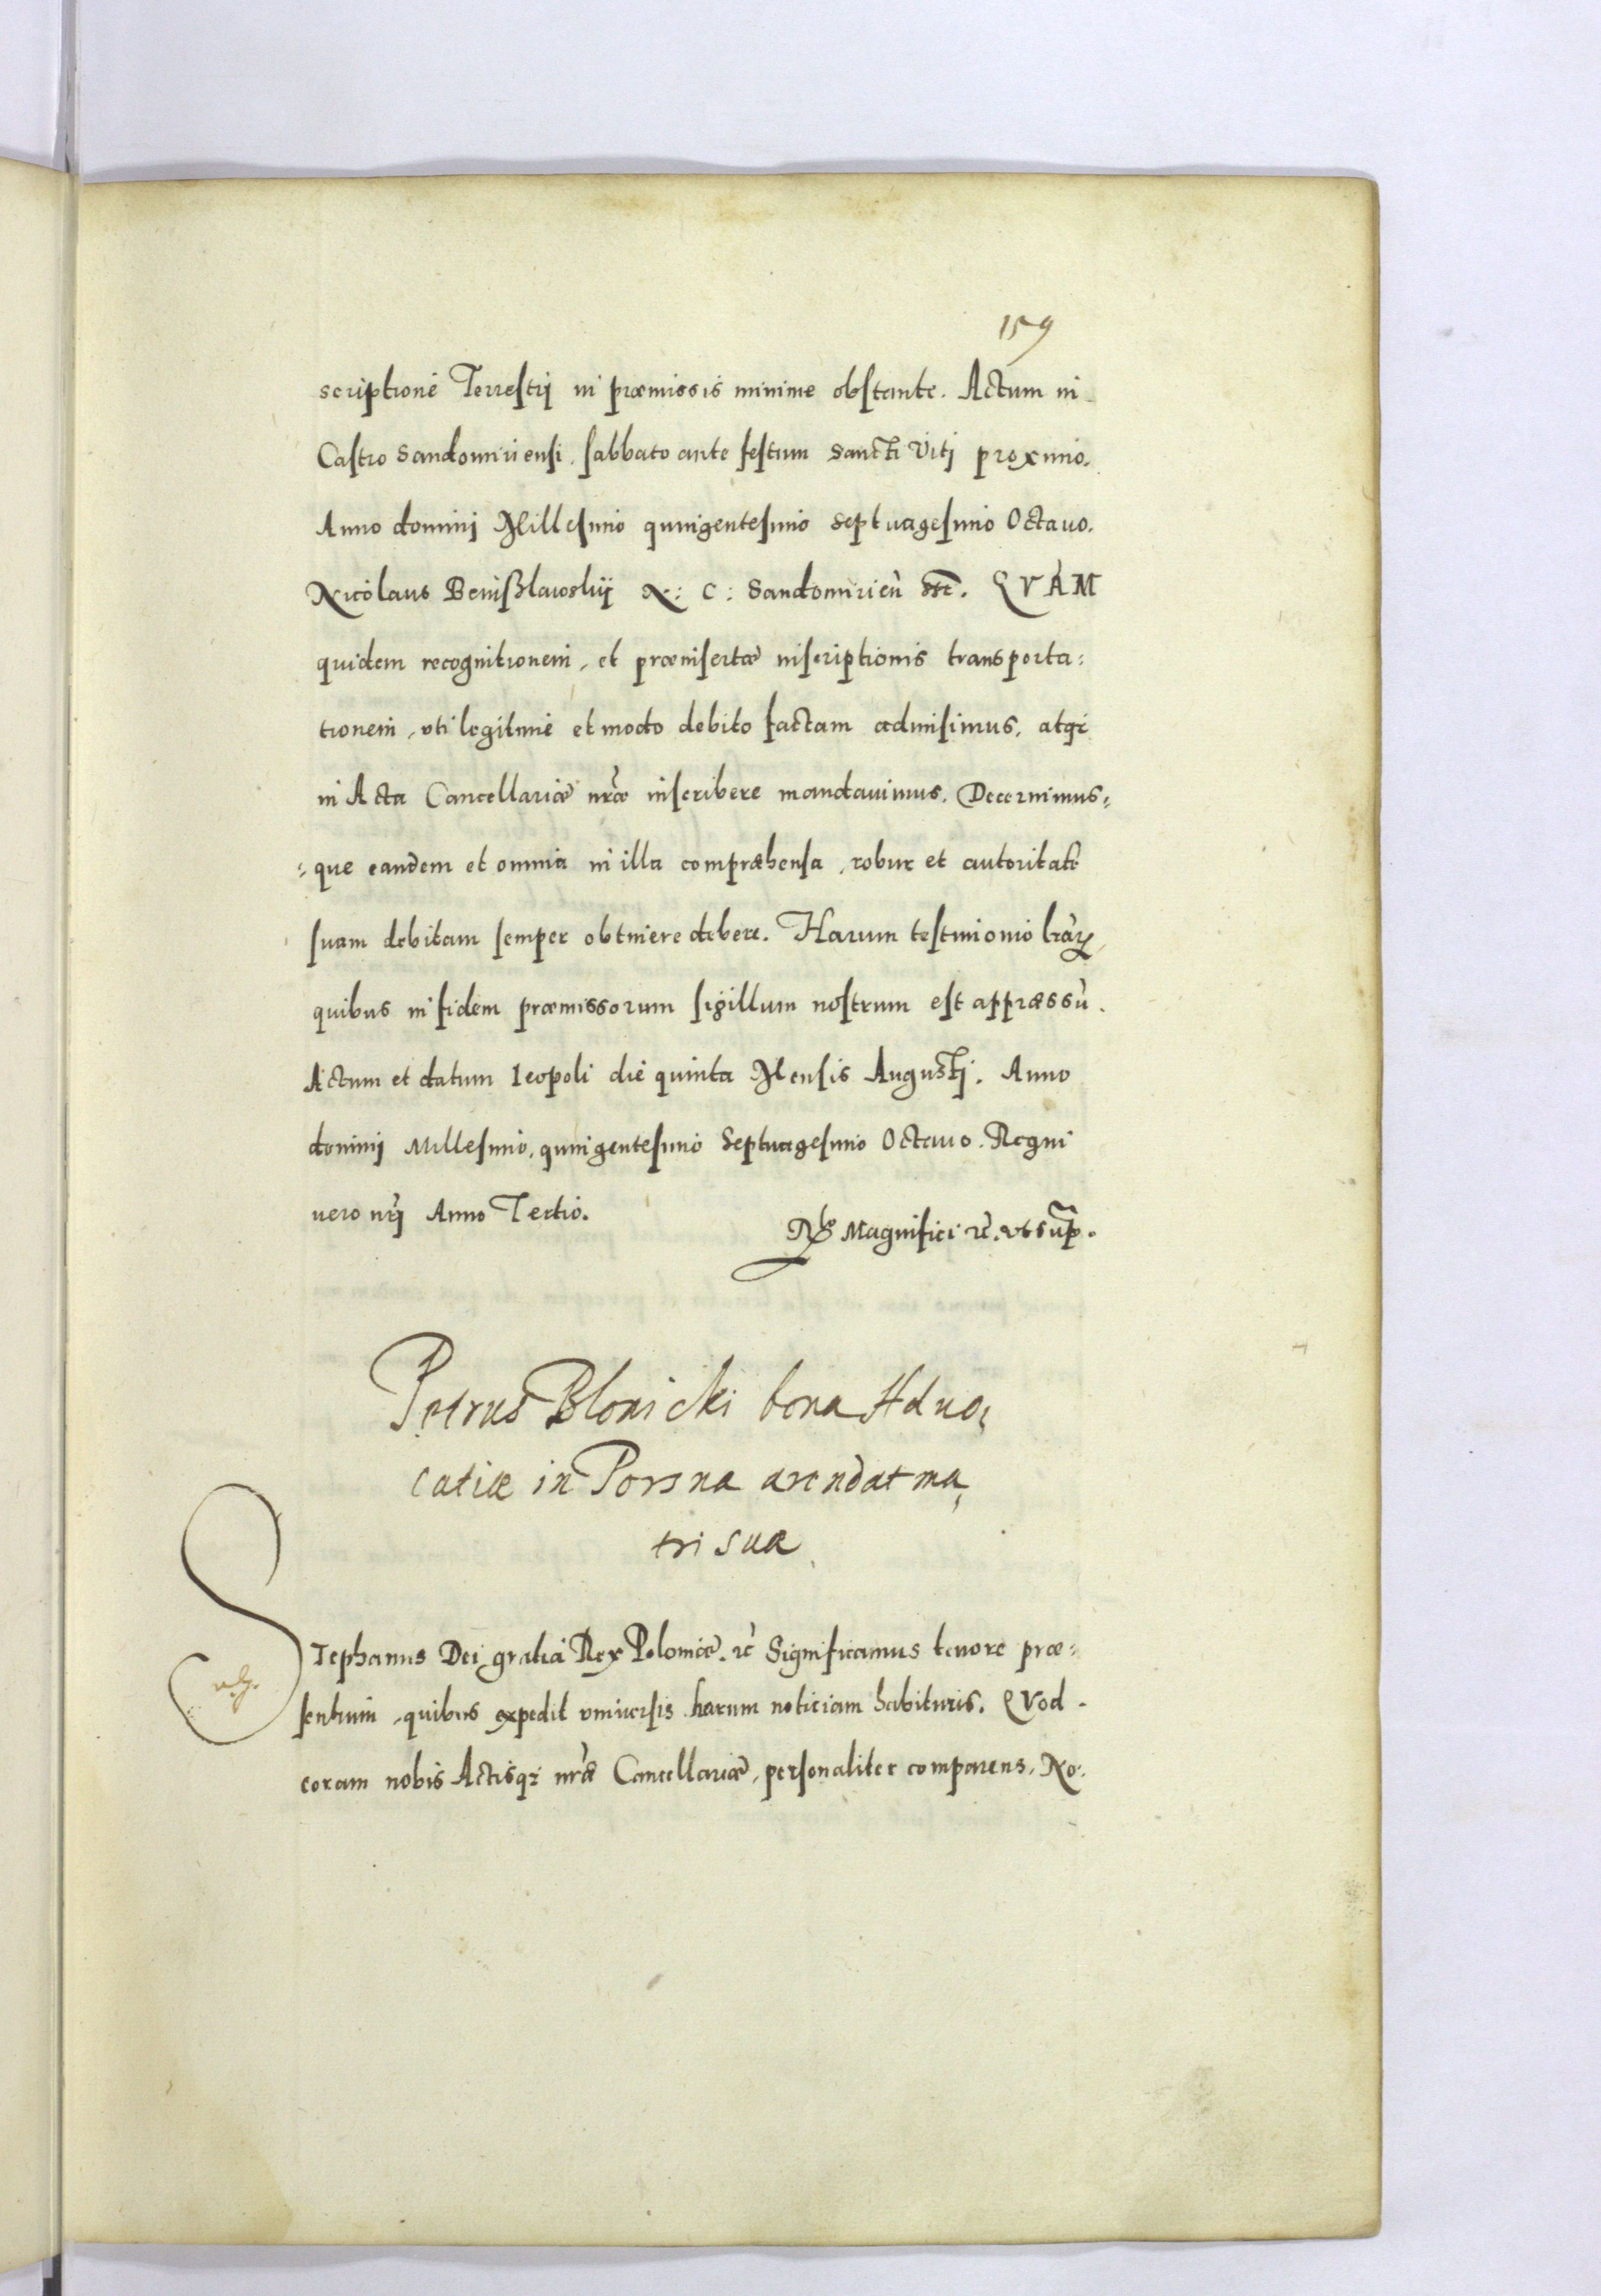 159
scriptione Terrestrj in præmissis minime obstante. Actum in
Castro Sandomiriensi, sabbato ante festum Sancti Vitj proximo.
Anno dominj Millesimo quingentesimo septuagesimo Octauo.
Nicolaus Beniszlawskij N: C: Sandomirien̄ sst̄. QVAM
quidem recognitionem, et præinsertæ inscriptionis transporta:
tionem, vti legitime et modo debito factam admisimus, atq;
in Acta Cancellariæ nr̄æ inscribere mandauimus. Decernimus:
:que eandem et omnia in illa compræhensa, robur et autoritatē
suam debitam semper obtinere debere. Harum testimonio lr̄arꝝ
quibus in fidem præmissorum sigillum nostrum est appræssū.
Actum et datum Leopoli die quinta Mensis Augustj. Anno
dominj Millesimo, quingentesimo Septuagesimo Octauo. Regni
uero nr̄j Anno Tertio.
Rlo Magnifici &c̄. vt sup̄.
Petrus Blonicki bona Aduo:
catiæ in Porsna arendat ma,
tri suæ
Stephanus Dei gratia Rex Poloniæ. &c̄ Significamus tenore præ:
sentium, quibus expedit vniuersis harum noticiam habituris. QVod
coram nobis Actisq; nr̄æ Cancellariæ, personaliter comparens, No: